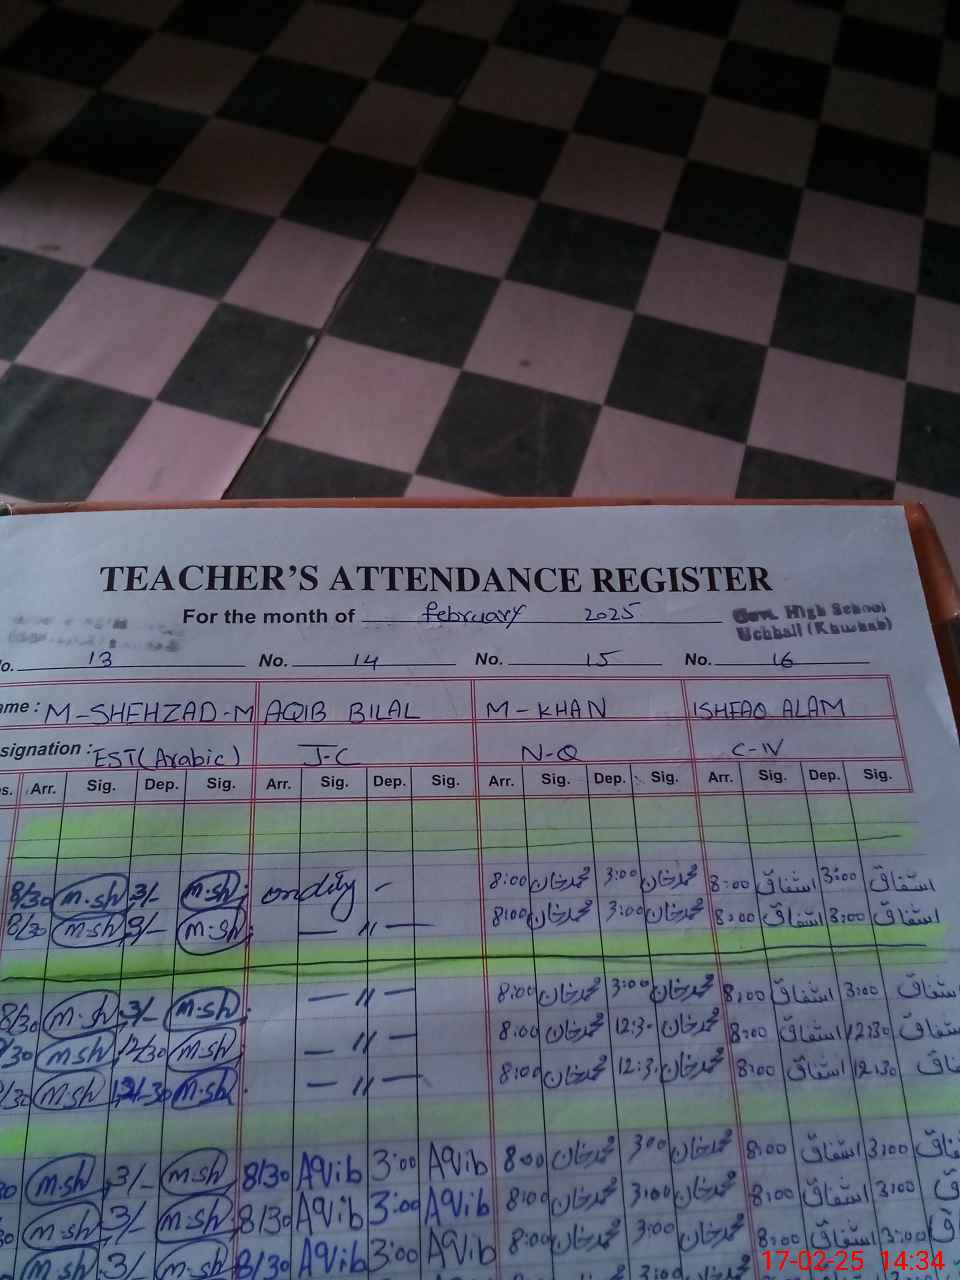 TEACHER'S ATTENDANCE REGISTER
For the month of February 2025
Govt. High School
Uchhali (Khushab)
No. 13 No. 14 No. 15 No. 16
ame : M-SHEHZAD-M AQIB BILAL M-KHAN ISHFAQ ALAM
signation : EST(Arabic) J-C N-Q C-IV
s. Arr. Sig. Dep. Sig. Arr. Sig. Dep. Sig. Arr. Sig. Dep. Sig. Arr. Sig. Dep. Sig.
8/30 M.sh 3/- M.sh 8:00 محمدخان 3:00 محمدخان 8:00 اشفاق 3:00 اشفاق
8/30 M.sh 3/- M.sh — 〃 — 8:00 محمدخان 3:00 محمدخان 8:00 اشفاق 3:00 اشفاق
8/30 M.sh 3/- M.sh — 〃 — 8:00 محمدخان 3:00 محمدخان 8:00 اشفاق 3:00 اشفاق
/30 M.sh 12/30 M.sh — 〃 — 8:00 محمدخان 12:3 محمدخان 8:00 اشفاق 12:30 اشفاق
/30 M.sh 12/-30 M.sh — 〃 — 8:00 محمدخان 12:3 محمدخان 8:00 اشفاق 12:30
30 M.sh 3/- M.sh 8/30 AQib 3:00 AQib 8:00 محمدخان 3:00 محمدخان 8:00 اشفاق 3:00
M.sh 3/- M.sh 8/30 AQib 3:00 AQib 8:00 محمدخان 3:00 محمدخان 8:00 اشفاق 3:00
M.sh 3/- M.sh 8/30 AQib 3:00 AQib 8:00 محمدخان 3:00 محمدخان 8:00 اشفاق 3:00
3:00
17-02-25 14:34